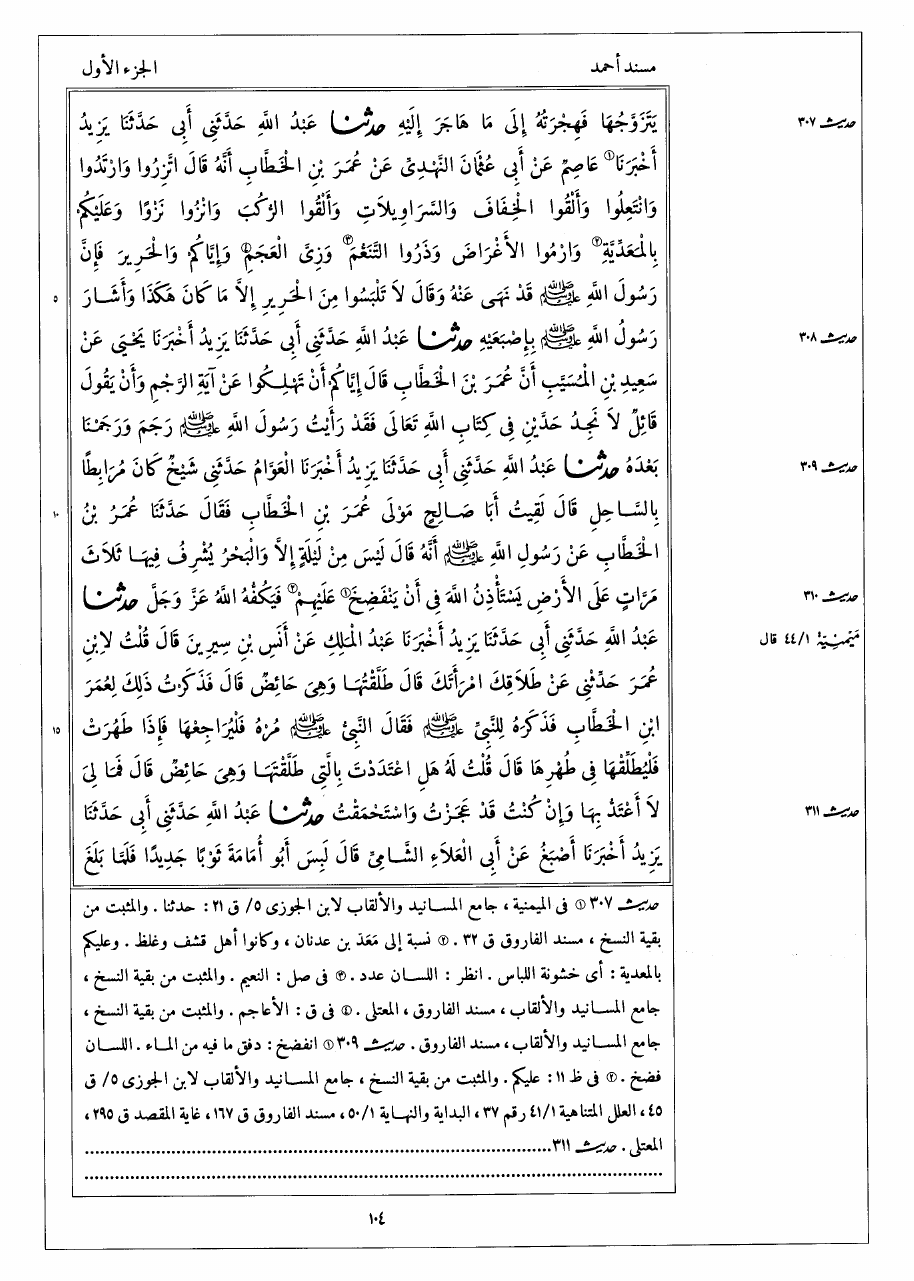 مسند أحمد
الجزء الأول
يَتَزَوَّجُهَا فَهِجْرَتُهُ إِلَى مَا هَاجَرَ إِلَيْهِ حدثنا عَبْدُ اللَّهِ حَدَّثَنِي أَبِي حَدَّثَنَا يَزِيدُ
حديث ٣٠٧
أَخْبَرَنَا① عَاصِمٌ عَنْ أَبِي عُثْمَانَ النَّهْدِيِّ عَنْ عُمَرَ بْنِ الْخَطَّابِ أَنَّهُ قَالَ اتَّزِرُوا وَارْتَدُوا
وَانْتَعِلُوا وَأَلْقُوا الْخِفَافَ وَالسَّرَاوِيلَاتِ وَأَلْقُوا الرُّكُبَ وَانْزُوا نَزْوًا وَعَلَيْكُمْ
بِالْمَعَدِّيَّةِ② وَارْمُوا الأَغْرَاضَ وَذَرُوا التَّنَعُّمَ③ وَزِيَّ الْعَجَمِ④ وَإِيَّاكُمْ وَالْحَرِيرَ فَإِنَّ
رَسُولَ اللَّهِ ﷺ قَدْ نَهَى عَنْهُ وَقَالَ لَا تَلْبَسُوا مِنَ الْحَرِيرِ إِلَّا مَا كَانَ هَكَذَا وَأَشَارَ
٥
رَسُولُ اللَّهِ ﷺ بِإِصْبَعَيْهِ حدثنا عَبْدُ اللَّهِ حَدَّثَنِي أَبِي حَدَّثَنَا يَزِيدُ أَخْبَرَنَا يَحْيَى عَنْ
حديث ٣٠٨
سَعِيدِ بْنِ الْمُسَيَّبِ أَنَّ عُمَرَ بْنَ الْخَطَّابِ قَالَ إِيَّاكُمْ أَنْ تَهْلِكُوا عَنْ آيَةِ الرَّجْمِ وَأَنْ يَقُولَ
قَائِلٌ لَا نَجِدُ حَدَّيْنِ فِي كِتَابِ اللَّهِ تَعَالَى فَقَدْ رَأَيْتُ رَسُولَ اللَّهِ ﷺ رَجَمَ وَرَجَمْنَا
بَعْدَهُ حدثنا عَبْدُ اللَّهِ حَدَّثَنِي أَبِي حَدَّثَنَا يَزِيدُ أَخْبَرَنَا الْعَوَّامُ حَدَّثَنِي شَيْخٌ كَانَ مُرَابِطًا
حديث ٣٠٩
بِالسَّاحِلِ قَالَ لَقِيتُ أَبَا صَالِحٍ مَوْلَى عُمَرَ بْنِ الْخَطَّابِ فَقَالَ حَدَّثَنَا عُمَرُ بْنُ
١٠
الْخَطَّابِ عَنْ رَسُولِ اللَّهِ ﷺ أَنَّهُ قَالَ لَيْسَ مِنْ لَيْلَةٍ إِلَّا وَالْبَحْرُ يُشْرِفُ فِيهَا ثَلَاثَ
مَرَّاتٍ عَلَى الأَرْضِ يَسْتَأْذِنُ اللَّهَ فِي أَنْ يَنْفَضِخَ① عَلَيْهِمْ② فَيَكُفُّهُ اللَّهُ عَزَّ وَجَلَّ حدثنا
حديث ٣١٠
عَبْدُ اللَّهِ حَدَّثَنِي أَبِي حَدَّثَنَا يَزِيدُ أَخْبَرَنَا عَبْدُ الْمَلِكِ عَنْ أَنَسِ بْنِ سِيرِينَ قَالَ قُلْتُ لِابْنِ
مَيْمَنِيَّة ٤٤/١ قال
عُمَرَ حَدِّثْنِي عَنْ طَلَاقِكَ امْرَأَتَكَ قَالَ طَلَّقْتُهَا وَهِيَ حَائِضٌ قَالَ فَذَكَرْتُ ذَلِكَ لِعُمَرَ
ابْنِ الْخَطَّابِ فَذَكَرَهُ لِلنَّبِيِّ ﷺ فَقَالَ النَّبِيُّ ﷺ مُرْهُ فَلْيُرَاجِعْهَا فَإِذَا طَهُرَتْ
١٥
فَلْيُطَلِّقْهَا فِي طُهْرِهَا قَالَ قُلْتُ لَهُ هَلِ اعْتَدَدْتَ بِالَّتِي طَلَّقْتَهَا وَهِيَ حَائِضٌ قَالَ فَمَا لِيَ
لَا أَعْتَدُّ بِهَا وَإِنْ كُنْتُ قَدْ عَجَزْتُ وَاسْتَحْمَقْتُ حدثنا عَبْدُ اللَّهِ حَدَّثَنِي أَبِي حَدَّثَنَا
حديث ٣١١
يَزِيدُ أَخْبَرَنَا أَصْبَغُ عَنْ أَبِي الْعَلَاءِ الشَّامِيِّ قَالَ لَبِسَ أَبُو أُمَامَةَ ثَوْبًا جَدِيدًا فَلَمَّا بَلَغَ
حديث ٣٠٧ ① في الميمنية ، جامع المسانيد والألقاب لابن الجوزى ٥/ ق ٢١ : حدثنا . والمثبت من
بقية النسخ ، مسند الفاروق ق ٣٢ . ② نسبة إلى مَعَدّ بن عدنان ، وكانوا أهل قشف وغلظ . وعليكم
بالمعدية : أى خشونة اللباس . انظر : اللسان عدد . ③ فى صل : النعيم . والمثبت من بقية النسخ ،
جامع المسانيد والألقاب ، مسند الفاروق ، المعتلى . ④ فى ق : الأعاجم . والمثبت من بقية النسخ ،
جامع المسانيد والألقاب ، مسند الفاروق . حديث ٣٠٩ ① انفضخ : دفق ما فيه من الماء . اللسان
فضخ . ② فى ظ ١١ : عليكم . والمثبت من بقية النسخ ، جامع المسانيد والألقاب لابن الجوزى ٥/ ق
٤٥ ، العلل المتناهية ٤١/١ رقم ٣٧ ، البداية والنهاية ٥٠/١ ، مسند الفاروق ق ١٦٧ ، غاية المقصد ق ٢٩٥ ،
المعتلى . حديث ٣١١ ........................................
........................................
١٠٤